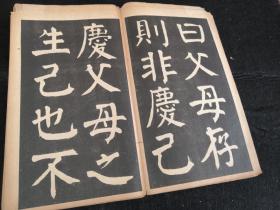 曰父母存
則非慶己
慶父母之
生己也不